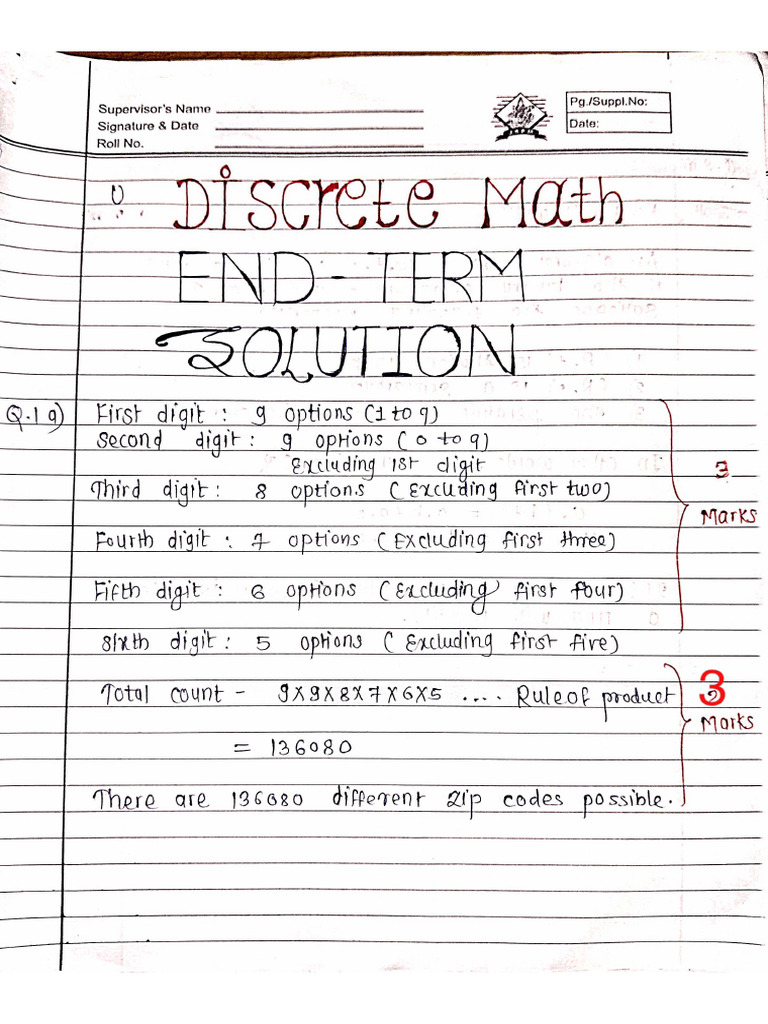 Supervisor's Name
Signature & Date
Roll No.
Pg./Suppl.No:
Date:
Discrete Math
END-TERM
SOLUTION
Q.1 a) First digit : 9 options (1 to 9)
Second digit : 9 options (0 to 9)
Excluding 1st digit
Third digit : 8 options (Excluding first two)
3
Marks
Fourth digit : 7 options (Excluding first three)
Fifth digit : 6 options (Excluding first four)
Sixth digit : 5 options (Excluding first five)
Total count - 9X9X8X7X6X5 .... Rule of product
3
Marks
= 136080
There are 136080 different zip codes possible.